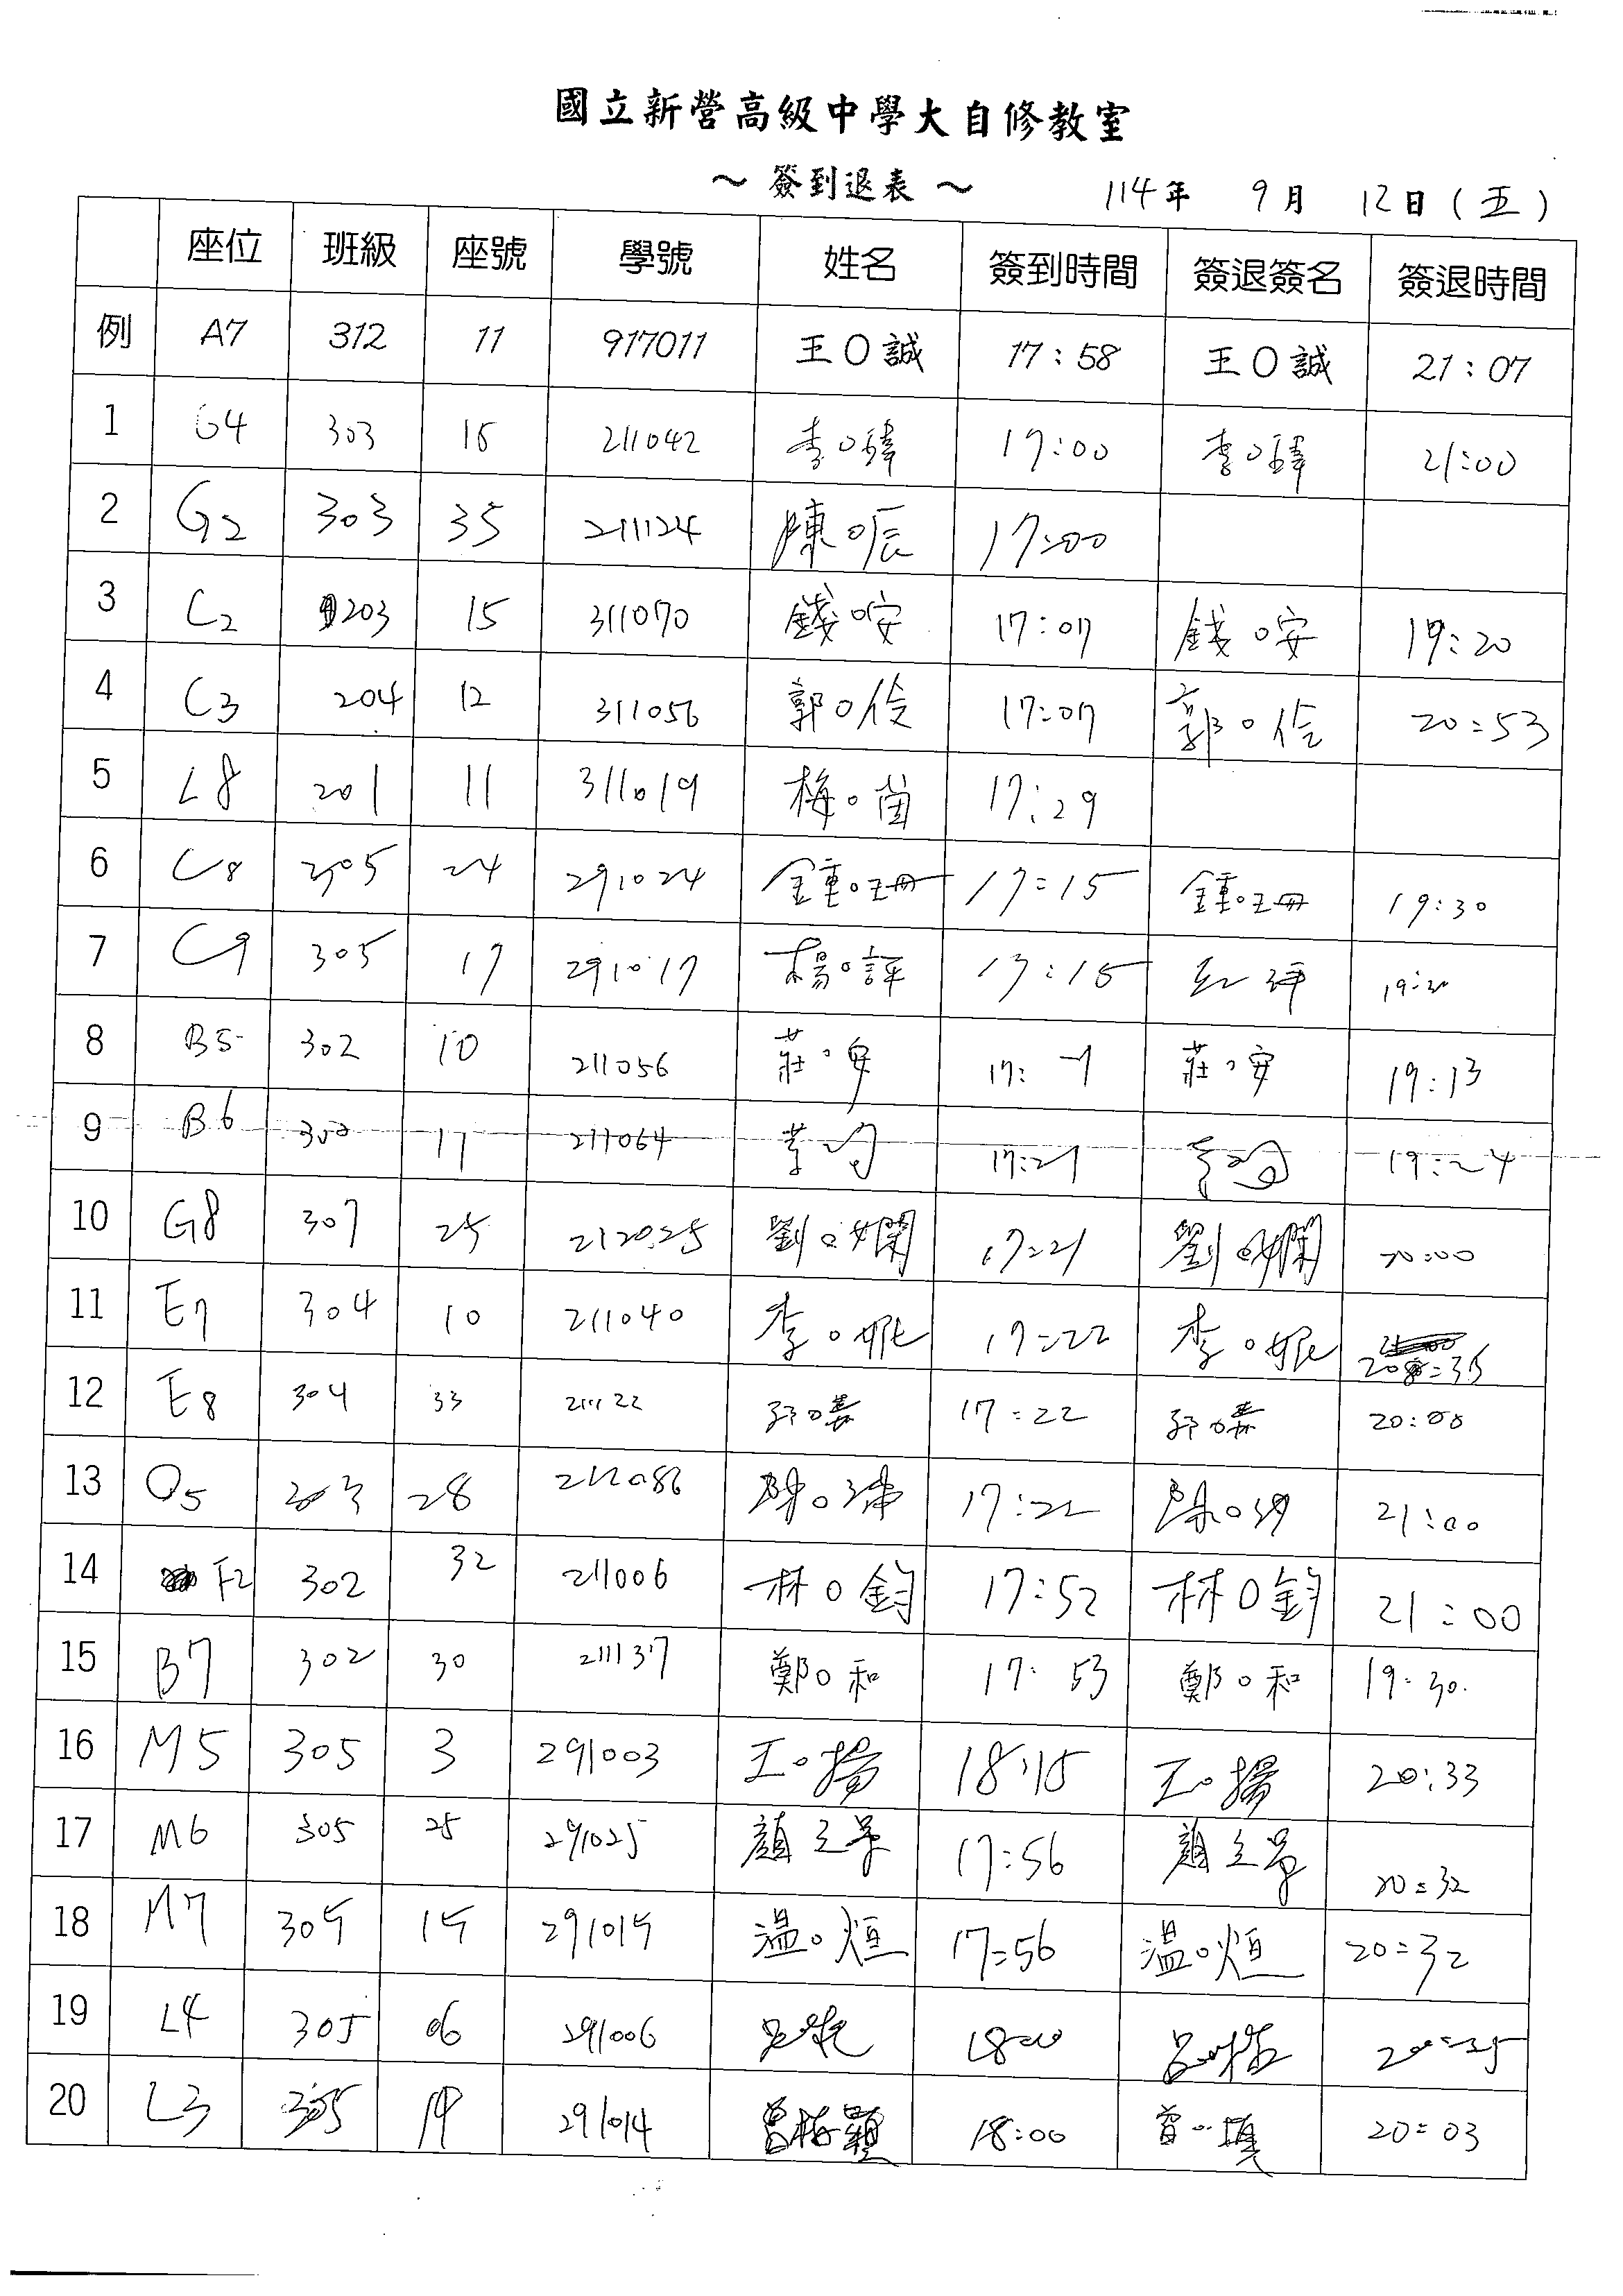 國立新營高級中學大自修教室
～ 簽到退表 ～ 114年 9月 12日（五）
座位 班級 座號 學號 姓名 簽到時間 簽退簽名 簽退時間
例 A7 312 11 917011 王O誠 17:58 王O誠 21:07
1 G4 303 15 211042 李O 17:00 李O 21:00
2 G2 303 35 211124 陳O辰 17:00
3 C2 203 15 311070 錢O安 17:07 錢O安 19:20
4 C3 204 12 311056 郭O伶 17:07 郭O伶 20:53
5 L8 201 11 311019 梅O茵 17:29
6 C8 305 24 291024 鍾O珊 17:15 鍾O珊 19:30
7 C9 305 17 291017 楊O評 17:15
8 B5 302 10 211056 莊O安 17: 莊O安 19:13
9 B6 302 11 211064 17:21 19:24
10 G8 307 25 212025 劉O嫻 17:21 劉O嫻 20:00
11 E7 304 10 211040 李O妮 17:22 李O妮 20:35
12 E8 304 33 211122 17:22 20:00
13 O5 203 28 212086 陳O 17:22 陳O 21:00
14 F2 302 32 211006 林O鈞 17:52 林O鈞 21:00
15 B7 302 30 211137 鄭O和 17:53 鄭O和 19:30
16 M5 305 3 291003 王O揚 18:15 王O揚 20:33
17 M6 305 25 291025 顏 17:56 顏 20:32
18 M7 305 15 291015 溫O烜 17:56 溫O烜 20:32
19 L4 305 06 291006 18:00 呂 20:25
20 L3 305 14 291014 曾 穎 18:00 曾 20:03